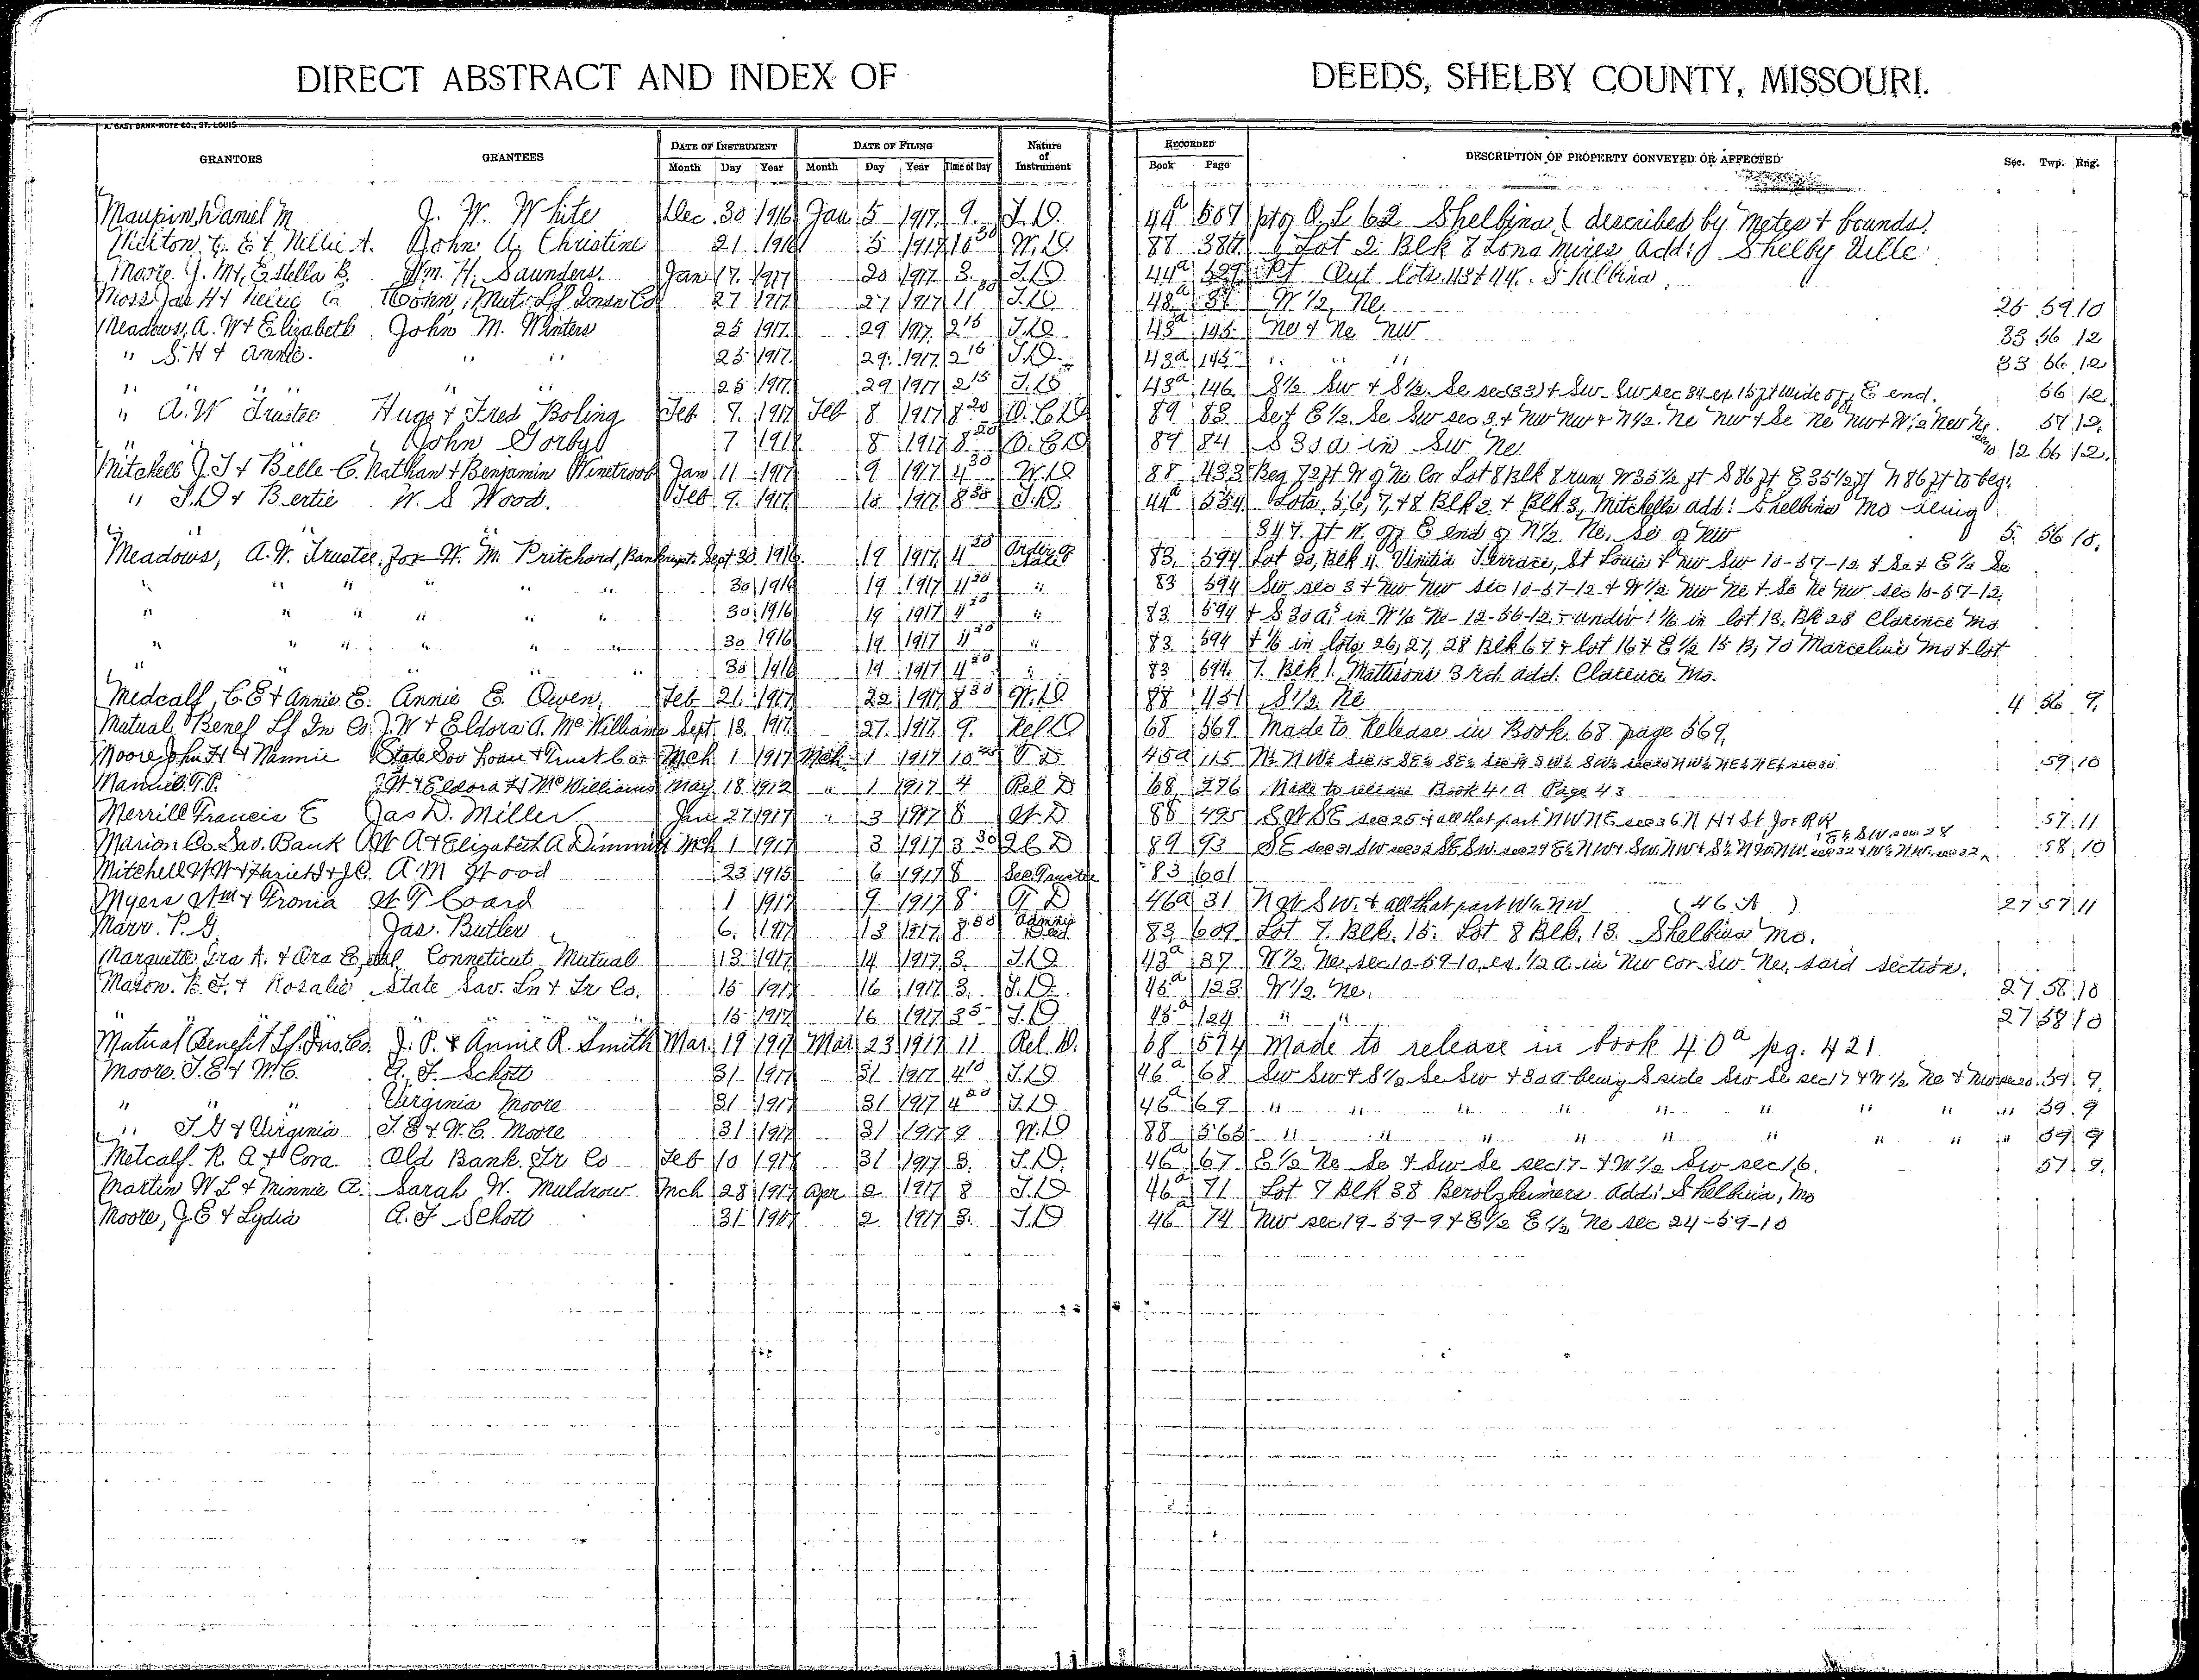 DIRECT ABSTRACT AND INDEX OF DEEDS, SHELBY COUNTY, MISSOURI.
GRANTORS GRANTEES DATE OF INSTRUMENT DATE OF FILING Nature of Instrument RECORDED DESCRIPTION OF PROPERTY CONVEYED OR AFFECTED Sec. Twp. Rng.
Month Day Year Month Day Year Time of Day Book Page
Maupin, Daniel M J. W. White Dec. 30 1916 Jan 5 1917 9. T.D. 44a 507 pt of O. L 62 Shelbina (described by metes & bounds)
& Nellie A. John A. Christine 21 1916 5 1917 10 30 W.D. 88 Lot 2 Blk 8 Long mires add: Shelby Ville
Moore J. M & Estella B. Wm. H. Saunders. Jan 17. 1917 20 1917 3. T.D 44a 529 Pt Out lots 113 & 114. Shelbina.
Moss Jas H & Conn. Mut. Lf Insn Co 27 1917 27 1917 11 30 T.D. 43a 81 W 1/2 Ne 25 59 10
Meadows, A. W & Elizabeth John M. Winters 25 1917. 29 1917. 2 15 T.D. 43a 145 Ne & Ne NW 33 56 12
" S. H & Annie. " " 25 1917. 29. 1917 2 15 T.D. 43a 145 " " " 33 56 12
" " " " " 25 1917 29 1917 2 15 T.D 43a 146 S 1/2 Sw & S 1/2 Se sec (33) & Sw Sw sec 34 ex 15 ft wide off E end. 56 12
" A. W Trustee Hugo & Fred Boling Feb 7. 1917 Feb 8 1917 8 20 Q.C.D 89 83 Se & E 1/2 Se Sw sec 3 & NW NW & N 1/2 Ne NW & Se Ne NW & W 1/2 New Ne 57 12.
" " John Gorby 7 1917 8 1917 8 20 Q.C.D 89 84 S 30 a in Sw Ne 12 56 12.
Mitchell J. T & Belle C. Nathan & Benjamin Winetroob Jan 11 1917 9 1917 4 30 W.D 88 433 Beg 72 ft W of Ne Cor Lot 8 Blk 8 run W 35 1/2 ft S 86 ft E 35 1/2 ft N 86 ft to beg.
" T. D & Bertie W. S Wood. Feb 9. 1917 10 1917 8 30 T.D. 44a 534 Lots 5, 6, 7, & 8 Blk 2 & Blk 3, Mitchells add: Shelbina Mo being
" " 347 ft W off E end of N 1/2 Ne, Se of NW 5. 56 10.
Meadows, A. W. Trustee, for W. M. Pritchard, Bankrupt. Sept 30 1916. 19 1917. 4 20 Order of Sale 83. 594 Lot 20, Blk 4. Vinitia Terrace, St Louis & NW Sw 10-57-12 & Se & E 1/2 Se
" " " " " 30 1916 19 1917 4 20 " 83 594 Sw sec 3 & NW NW sec 10-57-12 & W 1/2 NW Ne & Se Ne NW sec 10-57-12.
" " " " " 30 1916 19 1917 4 20 " 83. 594 & S 30 a's in W 1/2 Ne-12-56-12. & undiv: 1/6 in lot 13. Blk 28 Clarence Mo.
" " " " " 30 1916 19. 1917 4 20 " 83 594 & 1/6 in lots 26, 27, 28 Blk 67 & lot 16 & E 1/2 15 B, 70 Marceline Mo & lot
" " 30 1916 19 1917 4 20 " 83 594. 7. Blk 1. Mattisons 3rd add. Clarence Mo.
Medcalf, C. E & Annie E. Annie E. Owen, Feb 21. 1917 22 1917 8 30 W.D 88 451 S 1/2 Ne 4 56 9.
Mutual Benef Lf In Co J. W & Eldora A. McWilliams Sept. 13. 1917 27. 1917 9. Rel D 68 569. Made to Release in Book 68 page 569.
Moore John H & Nannie State Sav Loan & Trust Co Mch 1 1917 Mch 1 1917 10 T D 45a 115 59 10
Mannie T. P. J W & Eldora H McWilliams May 18 1912 " 1 1917 4 Rel D 68 276 Made to release Book 41 a Page 43
Merrill Francis E Jas D. Miller Jan 27 1917 " 3 1917 8 W. D 88 495 SW SE sec 25 & all that part NW NE sec 36 N H & St Joe RR 57 11
Marion Co Sav. Bank W A & Elizabeth A Dimmitt Mch 1 1917 3 1917 3 30 Q C D 89 93 58 10
Mitchell W W & J. C. A M Wood 23 1915 6 1917 8 83 601
Myers Wm & Fronia W. T Coard 1 1917 9 1917 8 T D 46a 31 N of Sw. & all that part W 1/2 NW (46 A) 27 57 11
Marr. P. G Jas. Butler 6. 1917 13 1917 8 30 Admin Deed 83 609 Lot 7. Blk. 15. Lot 8 Blk. 13. Shelbina Mo.
Marquette Ira A. & Ora E, Conneticut Mutual 13 1917 14 1917 3. T.D 43a 87 W 1/2 Ne, sec 10-59-10, ex. 1/2 a. in NW cor. Sw Ne, said section.
Mason. E. F. & Rosalie State Sav. Ln & Tr Co. 15 1917 16 1917 3. T.D. 45a 123 W 1/2 Ne. 27 58 10
" " " " 15 1917 16 1917 3 5 T.D 45a 124 " " 27 58 10
Mutual Benefit Lf. Ins. Co. J. P. & Annie R. Smith Mar. 19 1917 Mar 23 1917 11 Rel. D. 68 574 Made to release in book 40a pg. 421
Moore. T. E & W. C. A. F. Schott 31 1917 31 1917 4 10 T.D 46a 68 Sw Sw & S 1/2 Se Sw & 30 a being S side Sw Se sec 17 & N 1/2 Ne & NW sec 20 59. 9.
" " " Virginia Moore 31 1917 31 1917 4 20 T.D 46a 69 " " " " " " " " " 59 9
" T. G & Virginia T. E & W. C. Moore 31 1917 31 1917 9 W.D 88 565 " " " " " " " " " 59 9
Metcalf. R. A & Cora. Old Bank. Tr Co Feb 10 1917 31 1917 3. T.D. 46a 67 E 1/2 Ne Se & Sw Se sec 17 & W 1/2 Sw sec 16. 57 9.
Martin W L & Minnie A. Sarah W. Muldrow Mch 28 1917 Apr 2 1917 8 T.D 46a 71 Lot 7 Blk 38 Berolzheimers Addi: Shelbina, Mo
Moore, J. E & Lydia A. F Schott 31 1917 2 1917 3. T.D 46a 74 NW sec 19-59-9 & E 1/2 E 1/2 Ne sec 24-59-10